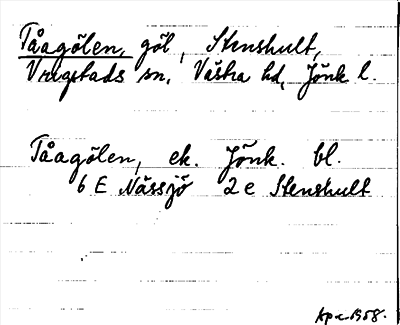 Tåagölen, göl, Stenshult,
Vrigstads sn, Västra hd, Jönk l.
Tåagölen, ek. Jönk. bl.
6 E Nässjö 2 e Stenshult